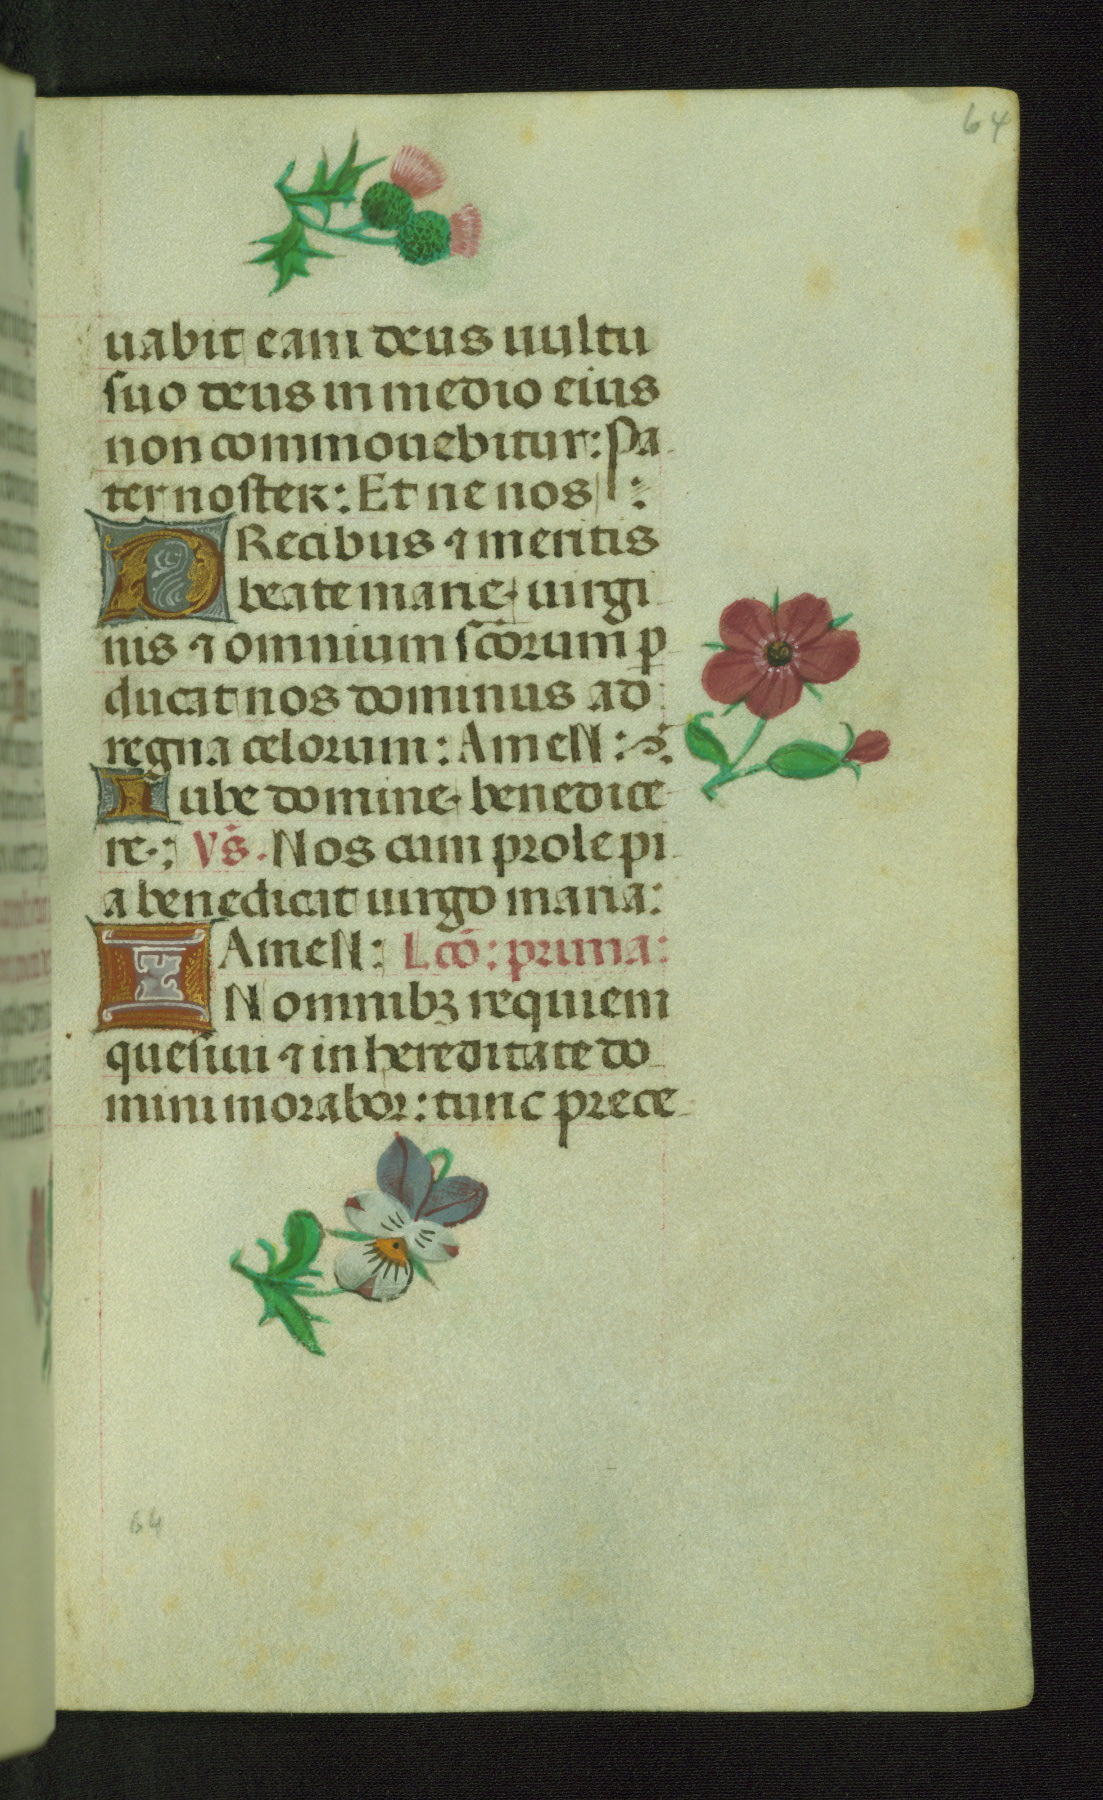 64
uabit eam deus uultu
suo deus in medio eius
non commouebitur: Pa
ter noster: Et ne nos :
PRecibus ⁊ meritis
beate marie uirgi
nis ⁊ omnium sc̄orum ꝑ
ducat nos dominus ad
regna celorum: AmeN:
Iube domine benedice
re: Vs̄. Nos cum prole pi
a benedicat uirgo maria:
AmeN: Lc̄o: prima:
IN omnibꝫ requiem
quesiui ⁊ in hereditate do
mini morabor: tunc prece
64